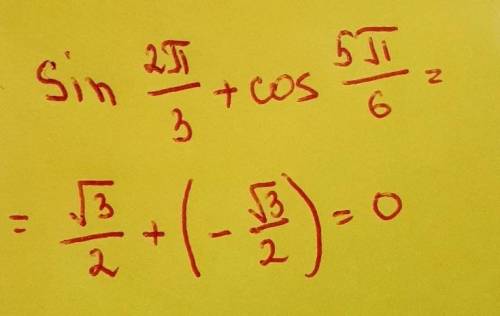 Sin 2π/3 + cos 5π/6 =
= √3/2 + (- √3/2) = 0